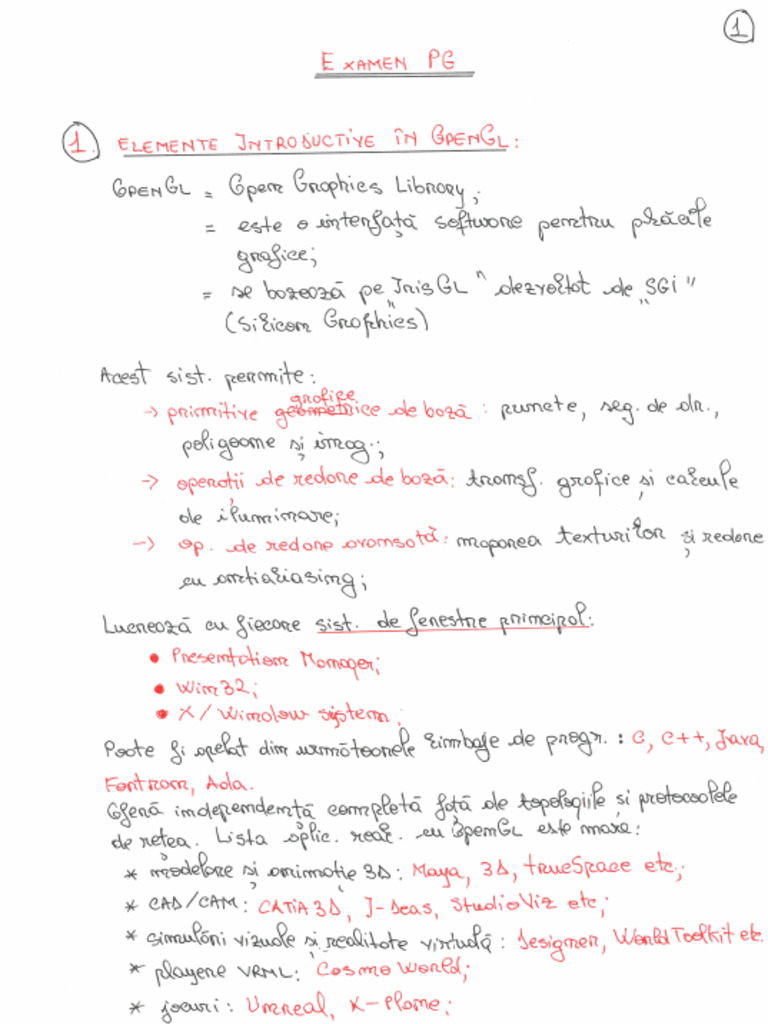 1
EXAMEN PG
1. ELEMENTE INTRODUCTIVE ÎN OPENGL:
OPENGL = Open Graphics Library;
= este o interfață software pentru plăcile
grafice;
= se bazează pe „IrisGL" dezvoltat de „SGI"
(Silicon Graphics)
Acest sist. permite:
grafice
→ primitive geometrice de bază: puncte, seg. de dr.,
poligoane și imag.;
→ operații de redare de bază: transf. grafice și calcule
de iluminare;
→ op. de redare avansată: maparea texturilor și redare
cu antialiasing;
Lucrează cu fiecare sist. de ferestre principal:
• Presentation Manager;
• Win32;
• X/Window system;
Poate fi apelat din următoarele limbaje de progr.: C, C++, Java,
Fortran, Ada.
Oferă independență completă față de topologiile și protocoalele
de rețea. Lista aplic. real. cu OpenGL este mare:
* modelare și animație 3D: Maya, 3D, trueSpace etc;
* CAD/CAM: CATIA 3D, I-Deas, StudioViz etc;
* simulări vizuale și realitate virtuală: Designer, WorldToolkit etc.
* playere VRML: Cosmo World;
* jocuri: Unreal, X-Plane;